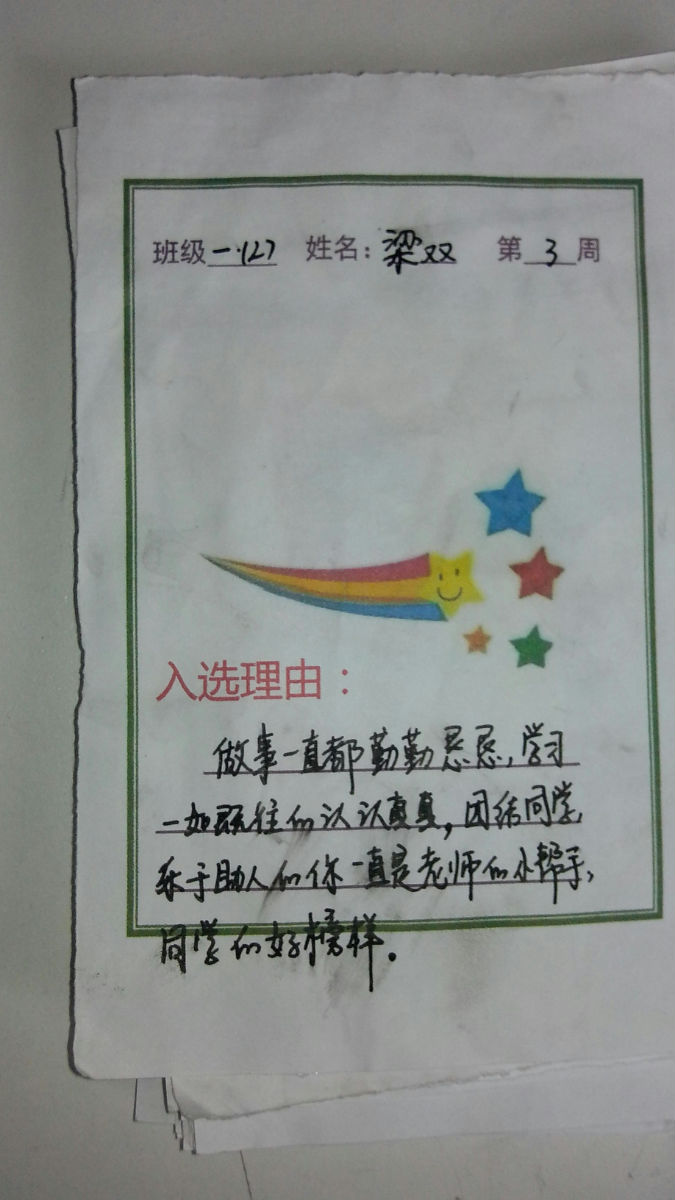 班级一·(2) 姓名：梁双 第3周
入选理由：
做事一直都勤勤恳恳，学习
一如既往的认认真真，团结同学，
乐于助人的你一直是老师的小帮手，
同学的好榜样。